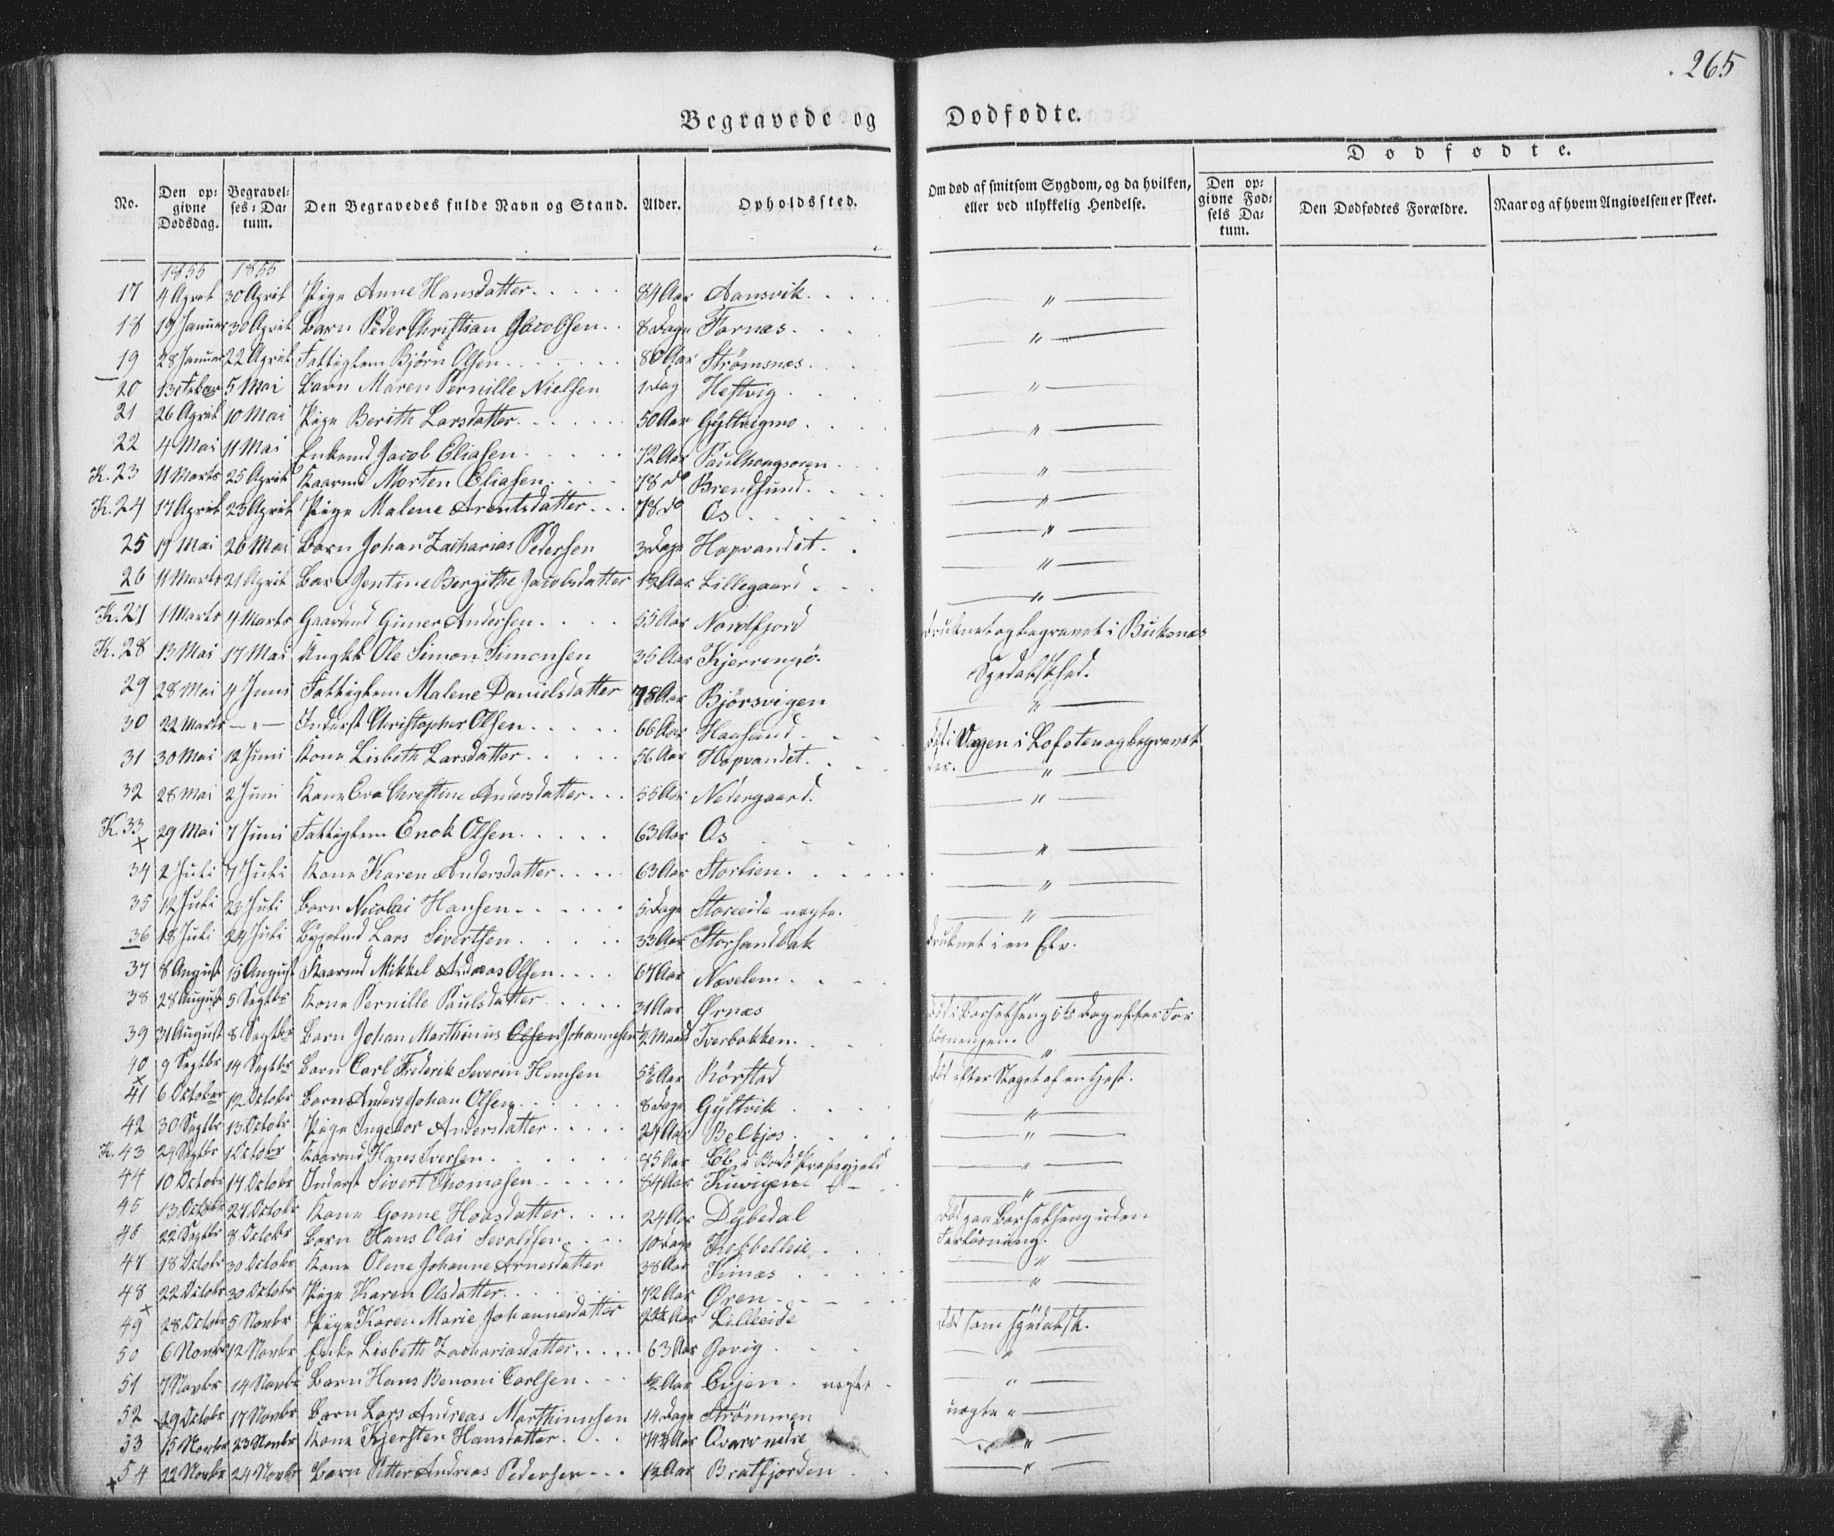 265
Begravede og Dødfødte.
Dødfødte.
No. Den opgivne Dødsdag. Begravelses-Datum. Den Begravedes fulde Navn og Stand. Alder. Opholdssted. Om død af smitsom Sygdom, og da hvilken, eller ved ulykkelig Hendelse. Den opgivne Fødsels Datum. Den Dødfødtes Forældre. Naar og af hvem Angivelsen er skeet.
1855 1855
17 4 April 30 April Pige Anne Hansdatter 84 Aar Aansvik "
18 19 Januar 30 April Barn Peder Christian Jacobsen 8 Dage Fornæs "
19 28 Januar 22 April Fattiglem Bjørn Olsen 80 Aar Strømsnæs
20 5 Mai Barn Maren Pernille Nielsen 1 Dag Hestvig "
21 26 April 10 Mai Pige Berith Larsdatter 50 Aar Gyltvigmo "
22 4 Mai 11 Mai Enkemd Jacob Eliasen 72 Aar "
K. 23 11 Marts 25 April Kaarmd Morten Eliasen 78 do Brendsund "
K. 24 17 April 23 April Pige Malene Arentsdatter 78 do Os "
25 19 Mai 26 Mai Barn Johan Zacharias Pedersen 3 Dage Hopvandet "
26 11 Marts 21 April Barn Jentine Bergithe Jacobsdatter 1/2 Aar Lillegaard "
K. 27 1 Marts 4 Marts Gaarmd Gimer Andersen 55 Aar Nordfjord Druknet og begravet i Buksnæs
K. 28 13 Mai 17 Mai Ungkl Ole Simon Simonsen 35 Aar Kjerringø Spedalskhed.
29 28 Mai 4 Juni Fattiglem Malene Danielsdatter 78 Aar Bjørsvigen "
30 22 Marts — " — Inderst Christopher Olsen 66 Aar Haasand Død i Vogen i Lofoten og begravet der.
31 30 Mai 12 Juni Kone Lisbeth Larsdatter 56 Aar Hopvandet "
32 28 Mai 2 Juni Kone Eva Christine Andersdatter 55 Aar Nedergaard "
K. 33 29 Mai 7 Juni Fattiglem Enok Olsen 63 Aar Os "
34 2 Juli 7 Juli Kone Karen Andersdatter 63 Aar Storlien "
35 12 Juli Juli Barn Nicolai Hansen Dage Storeide uægte. "
36 18 Juli 24 Juli Lars Sivertsen 33 Aar Storsandbak Druknet i en Elv.
37 8 August 15 August Kaarmd Mikkel Andreas Olsen 67 Aar Nævelem "
38 28 August 5 Septbr Kone Pernille Paulsdatter 31 Aar Ørnæs Død i Barselseng Dag efter For løsningen.
39 31 August 8 Septbr Barn Johan Marthinius Olsen Johannesen 1/2 Maand Tverbakken "
40 9 Septbr 14 Septbr Barn Carl Frederik Severin Hansen Aar Rørstad Død efter Slaget af en Hest.
41 6 October 12 Octobr Barn Anders Johan Olsen 8 Dage Gyltvik "
42 30 Septbr 13 Octobr Pige Ingebor Andersdatter 24 Aar "
K. 43 24 Septbr 1 Octobr Kaarmd Hans Iversen 85 Aar i Bodø Præstegjeld "
44 10 Octobr 17 Octobr Inderst Sivert Thomasen 84 Aar "
45 13 Octobr 24 Octobr Kone Gonne Hansdatter 24 Aar Dybedal Død paa Barselseng uden Forløsning.
46 22 Septbr 8 Octobr Barn Hans Olai Sevaldsen 10 Dage Kobbelleie
47 18 Octobr 30 Octobr Kone Olene Johanne Arnesdatter 38 Aar Kinæs "
48 22 Octobr 30 Octobr Pige Karen Olsdatter 72 Aar Øren "
49 28 Octobr 5 Novbr Pige Karen Marie Johannesdatter Aar Lilleeide Død som spedalsk.
50 6 Novbr 12 Novbr Enke Lisbeth Zachariasdatter 63 Aar Govig "
51 7 Novbr 14 Novbr Barn Hans Benoni Carlsen 1/2 Aar Evjen uægte "
52 29 Octobr 17 Novbr Barn Lars Andreas Marthinusen 14 Dage Strømmen uægte "
53 15 Novbr 23 Novbr Kone Kjersten Hansdatter 74 Aar Qvarv nedre "
54 22 Novbr 24 Novbr Barn Petter Andreas Pedersen 1/2 Aar Bratfjorden "